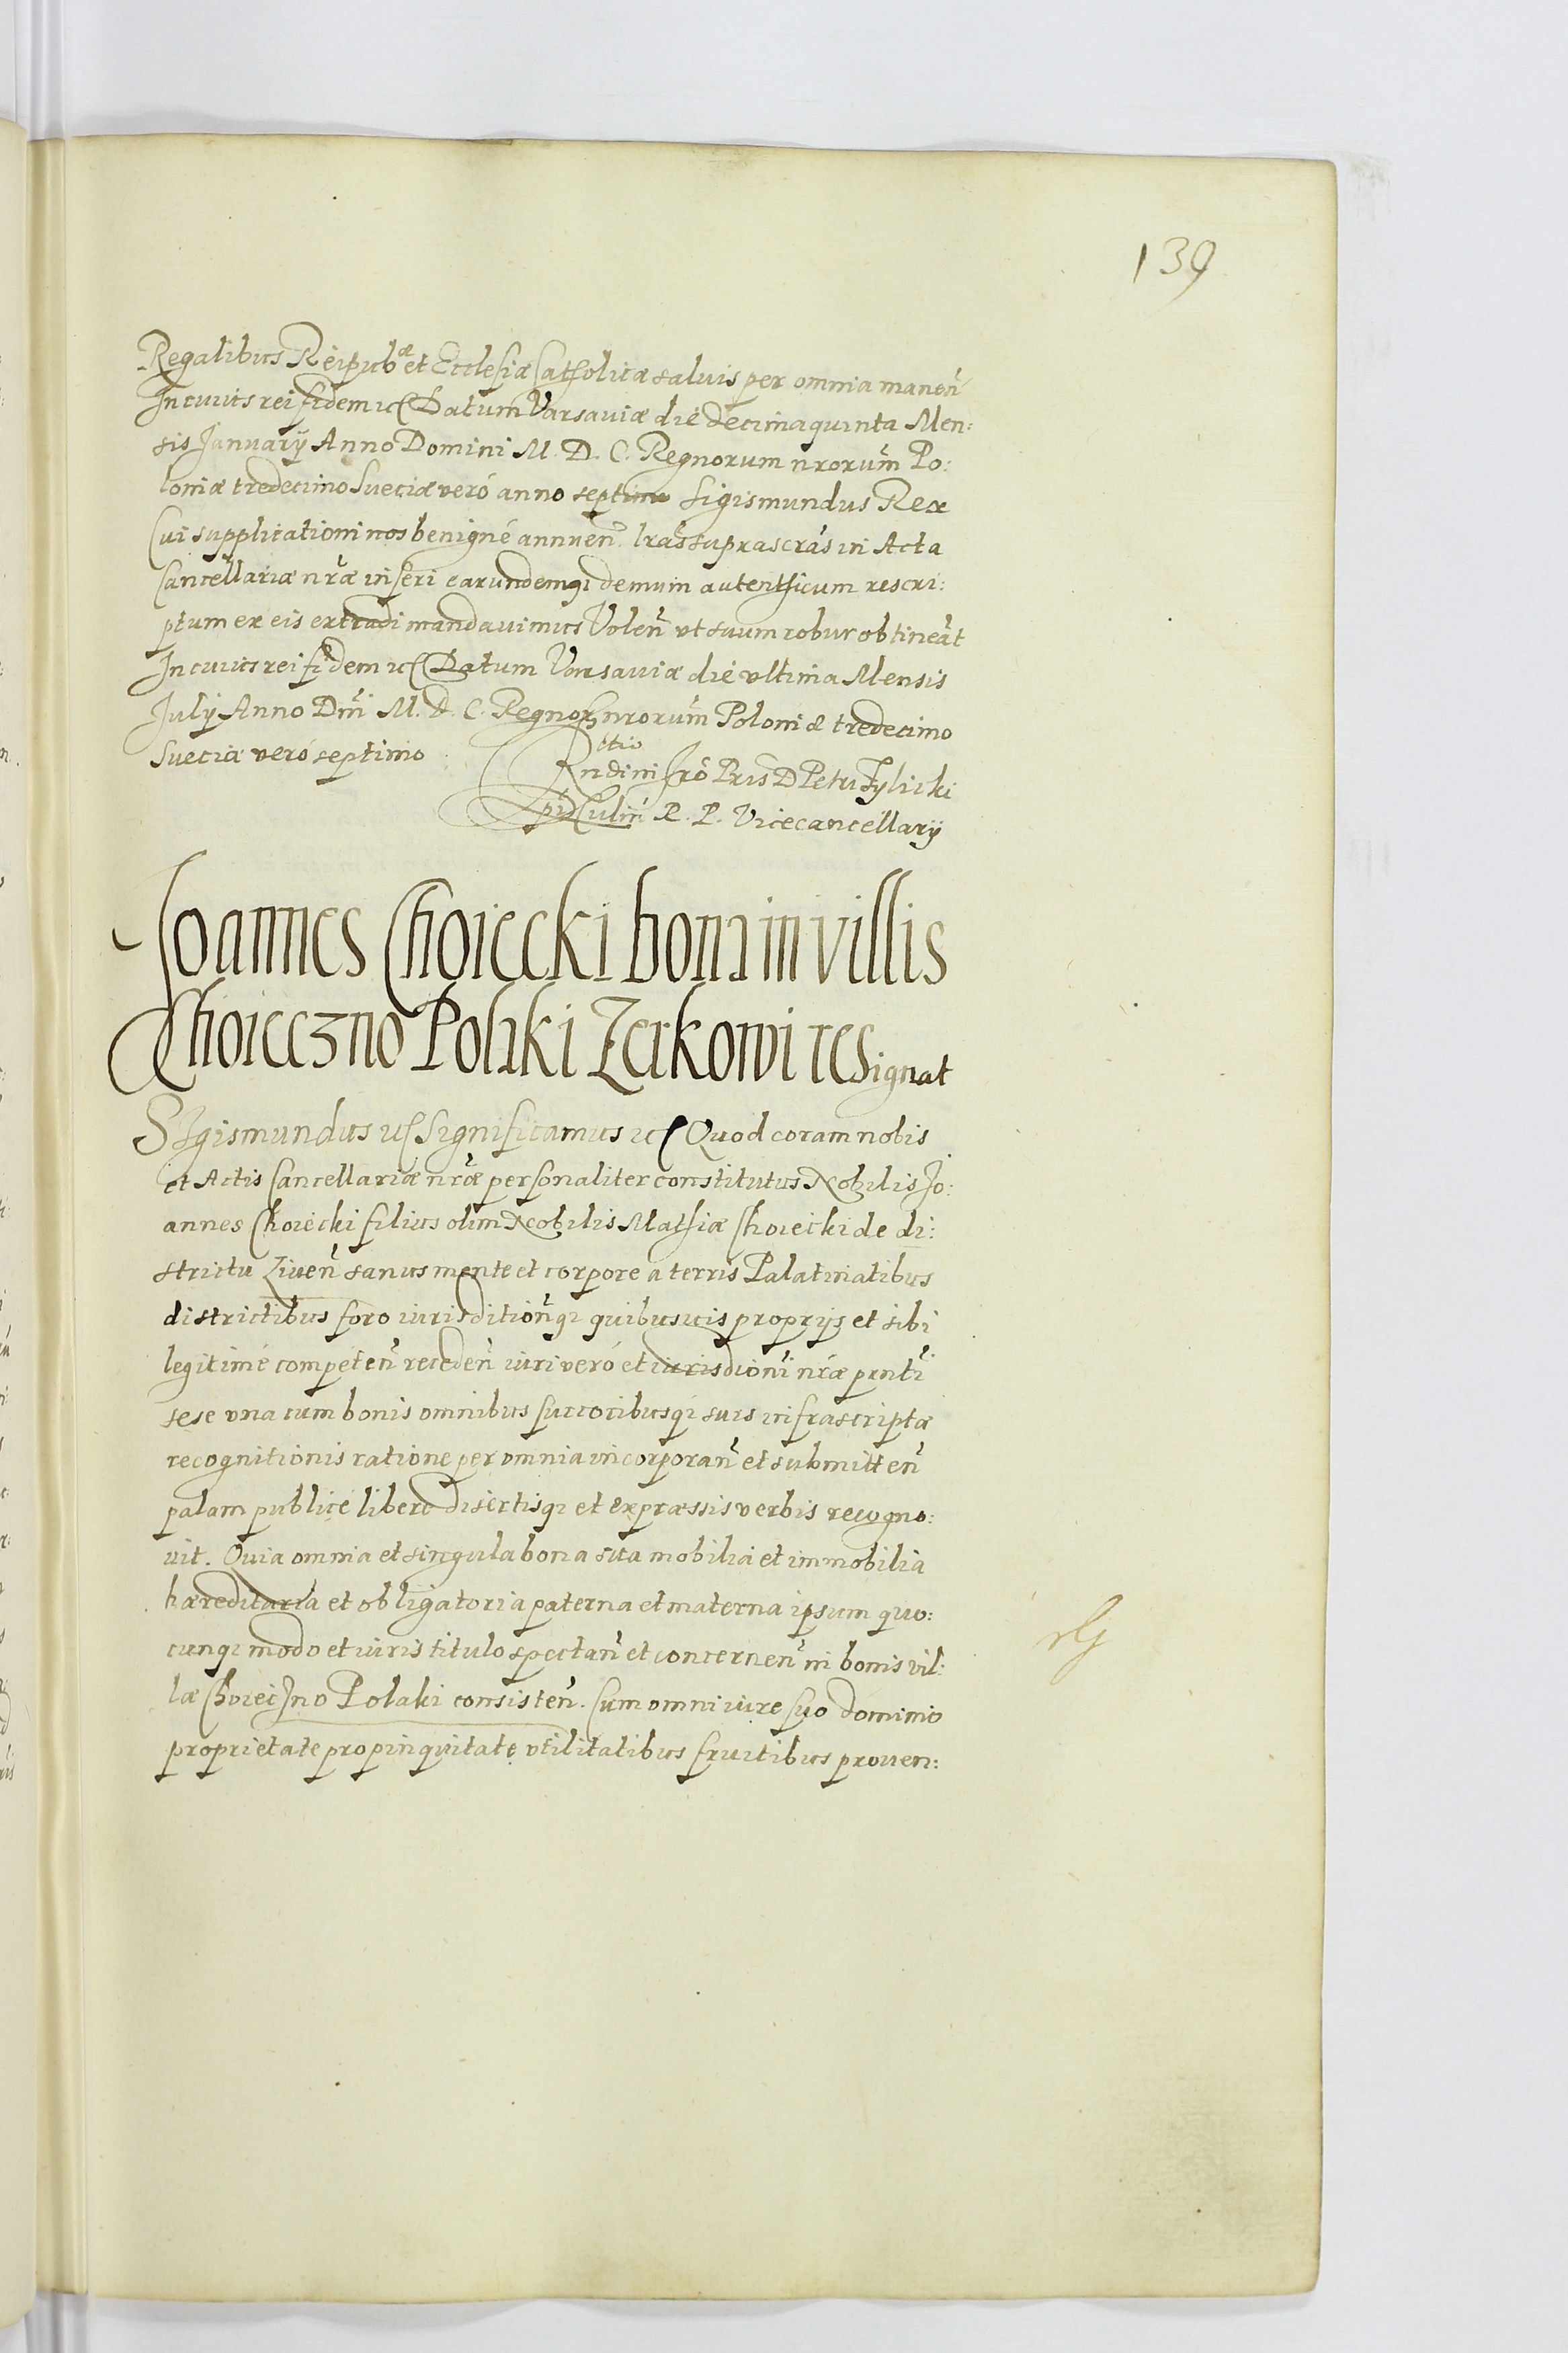 139
Regalibus Reipubæ et Ecclesiæ Catholicæ saluis per omnia manen̄
In cuius rei fidem ꝛc Datum Varsauiæ die decima quinta Men:
sis January Anno Domini M. D. C. Regnorum nrorum Po:
loniæ tredecimo Sueciæ veró anno septimo Sigismundus Rex
Cui supplicationi nos benigné annuen̄ lras suprascras in Acta
Cancellariæ nræ inseri earundemq; demum autenthicum rescri:
ptum ex eis extradi mandauimus Volen̄ vt suum robur obtineat
In cuius rei fidem ꝛc Datum Varsauiæ die vltima Mensis
July Anno Dni M. D. C. Regnorꝝ nrorum Poloniæ tredecimo
Sueciæ veró septimo
Rndi in Chro Pris D Petri Tylicki
Epi Culm̄ R. P. Vicecancellary
Joannes Choiecki bona in villis
Choieczno Polaki Zerkowi resignat
Sigismundus ꝛc Significamus ꝛc Quod coram nobis
et Actis Cancellariæ nræ personaliter constitutus Nobilis Jo:
annes Choiecki filius olim Nobilis Mathiæ Choiecki de di:
strictu Liuen̄ sanus mente et corpore a terris Palatinatibus
districtibus foro iurisdition̄q; quibusuis proprys et sibi
legitimé competen̄ receden̄ iuri veró et iurisdioni nræ prnti
sese vna cum bonis omnibus succoribusq; suis infrascriptæ
recognitionis ratione per omnia incorporan̄ et submitten̄
palam publicé liberé disertisq; et expræssis verbis recogno:
uit. Quia omnia et singula bona sua mobilia et immobilia
hæreditaria et obligatoria paterna et materna ipsum quo:
cunq; modo et iuris titulo spectan̄ et concernen̄ in bonis vil:
læ Choieczno Polaki consisten̄. Cum omni iure suo dominio
proprietate propinquitate vtilitatibus fruitibus prouen: